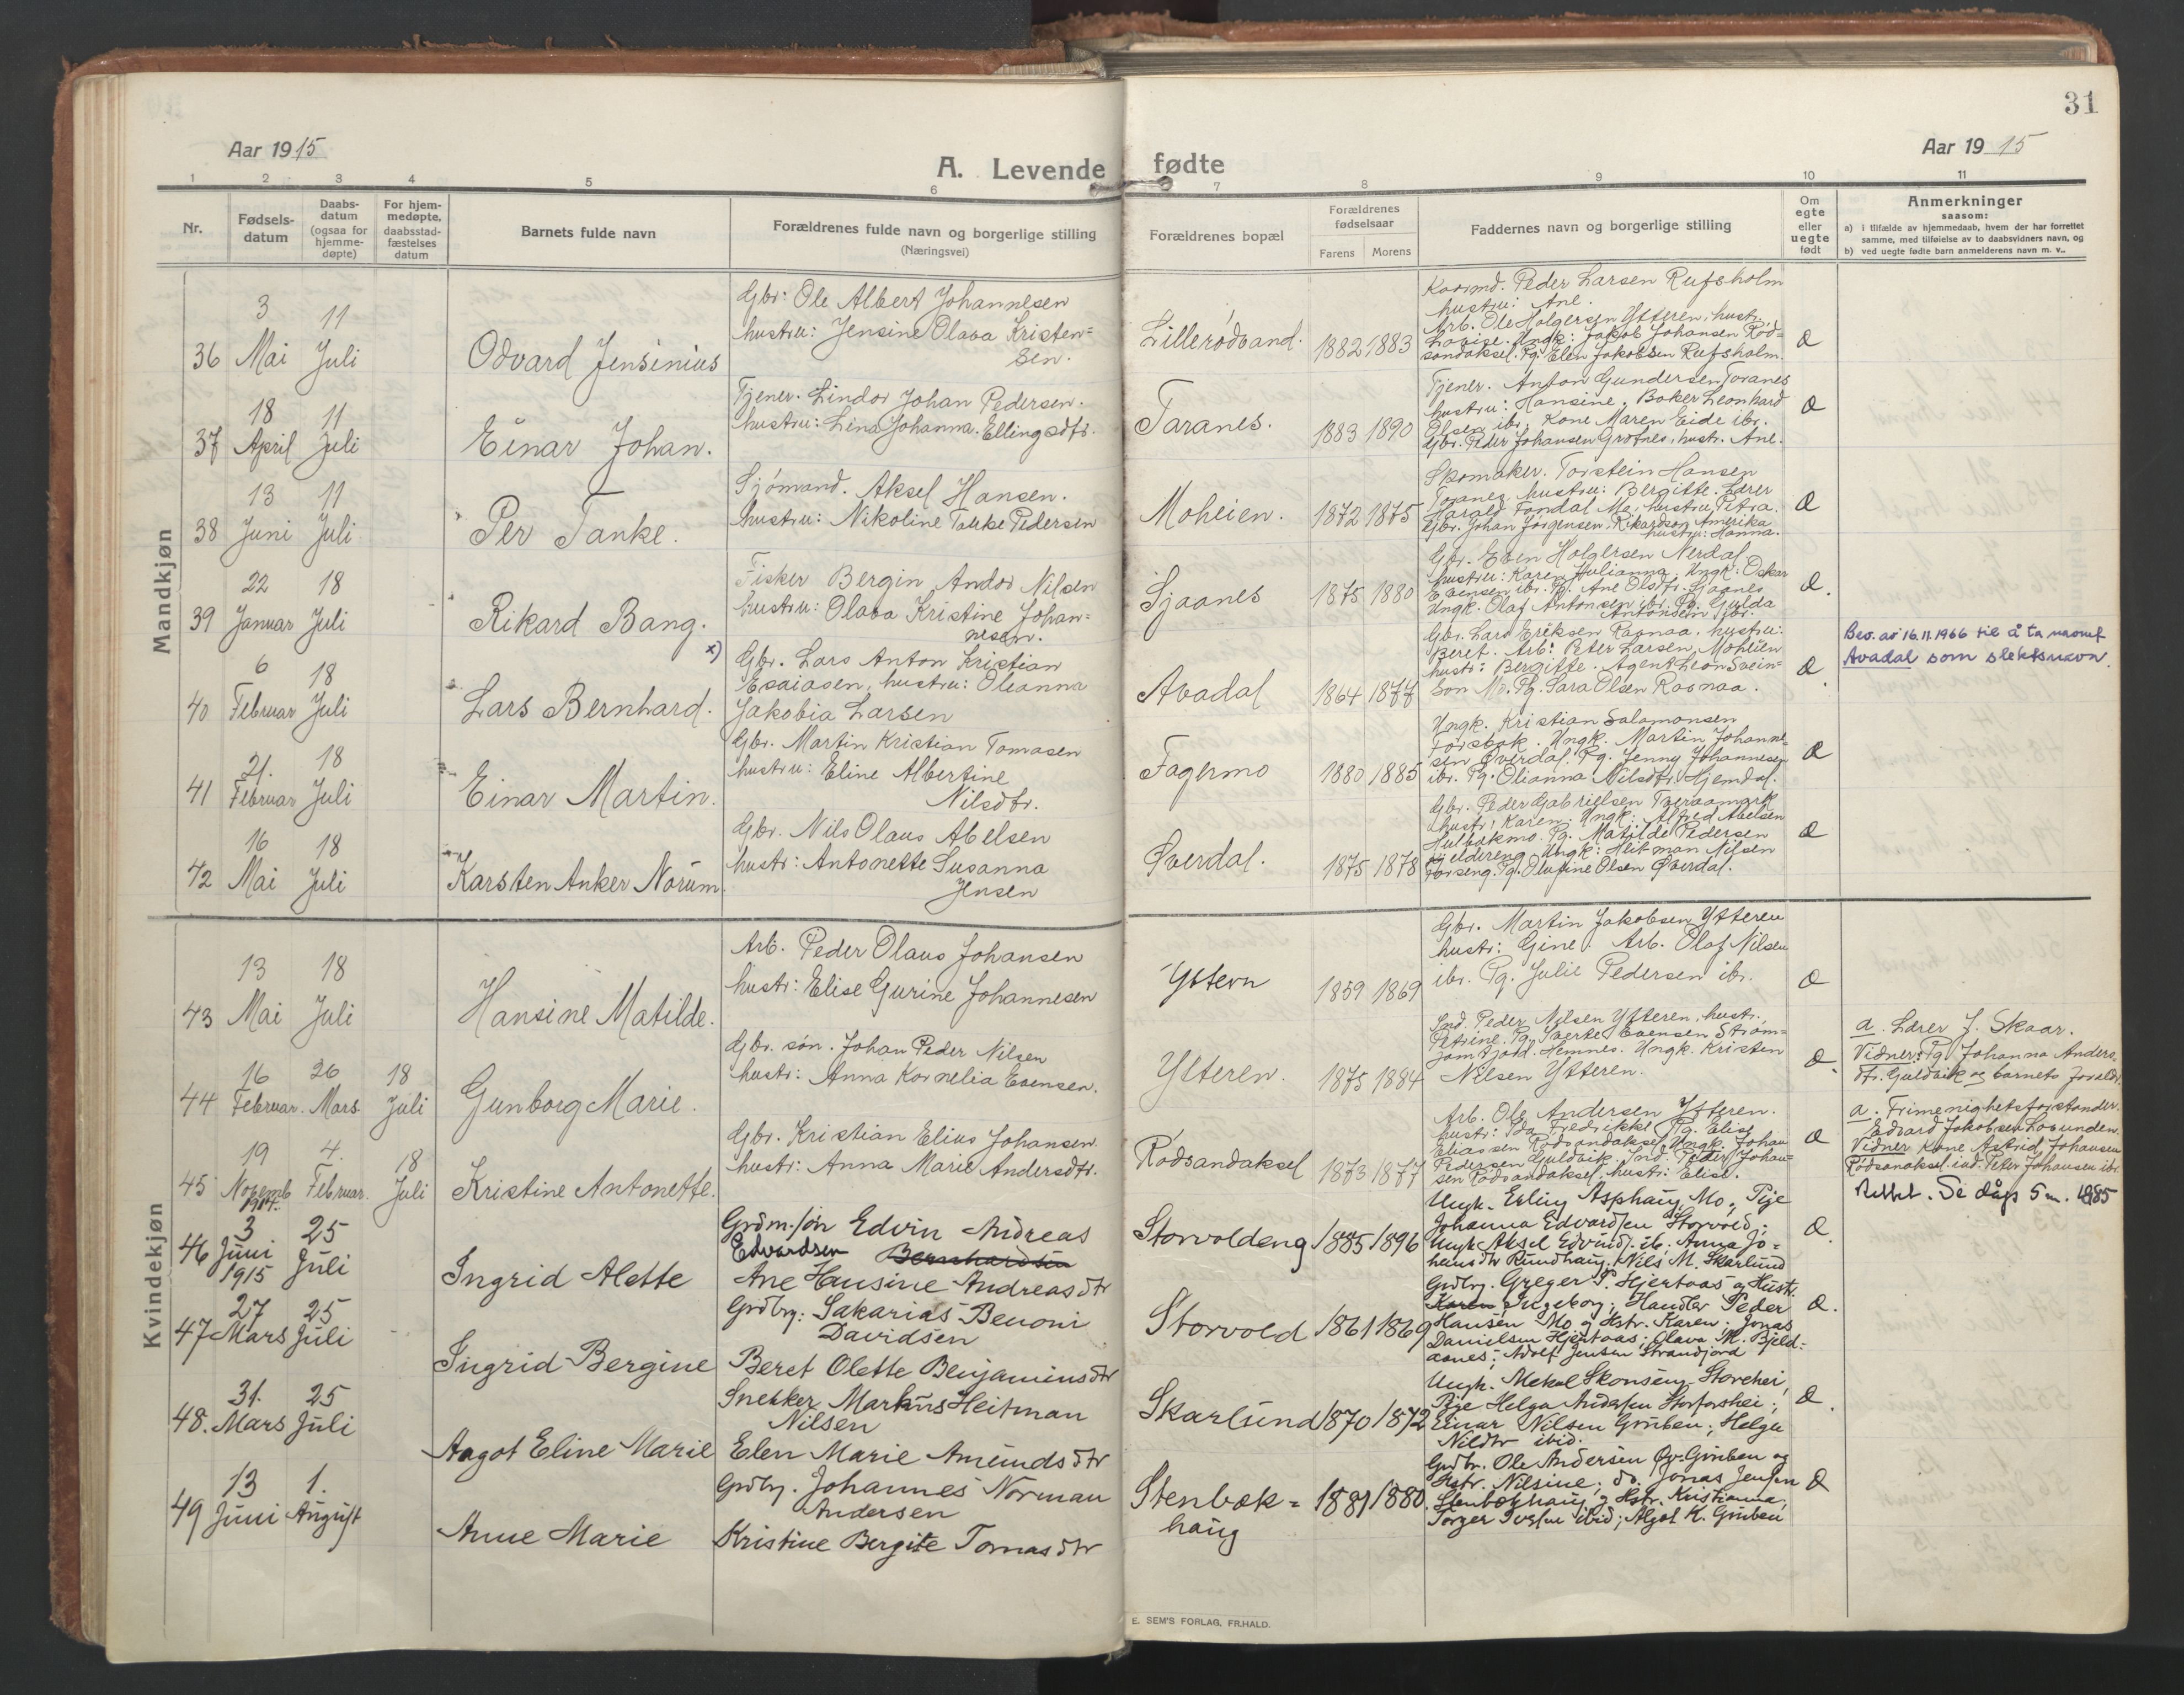 31
Aar 1915
A. Levende fødte
Aar 1915
1 2 3 4 5 6 7 8 9 10 11
Nr.
Fødsels-
datum
Daabs-
datum
(ogsaa for
hjemme-
døpte)
For hjem-
medøpte,
daabsstad-
fæstelses
datum
Barnets fulde navn
Forældrenes fulde navn og borgerlige stilling
(Næringsvei)
Forældrenes bopæl
Forældrenes
fødselsaar
Farens Morens
Faddernes navn og borgerlige stilling
Om
egte
eller
uegte
født
Anmerkninger
saasom:
a) i tilfælde av hjemmedaab, hvem der har forrettet
samme, med tilføielse av to daabsvidners navn, og
b) ved uegte fødte barn anmelderens navn m. v..
Mandkjøn
36 3 Mai 11 Juli
Odvard Jensinius
Gbr: Ole Albert Johannesen
hustru: Jensine Olava Kristen=
sen.
Lillerødvand. 1882 1883
Kaarmd. Peder Larsen Rufsholm
hustru: Ane.
Arb. Ole Holgersen Ytteren, hustr.
Lovise. Ungk: Jakob Johansen Rød=
sandaksel. Pg. Elen Jakobsen Rufsholm.
Æ
37 18 April 11 Juli
Einar Johan.
Tjener. Lindor Johan Pedersen.
hustru: Lina Johanna Ellingsdtr.
Taranes. 1883 1890
Tjener. Anton Gundersen Toranes
hustru: Hansine. Baker Leonhard
Olsen ibr. Kone Maren Eide ibr.
Gbr. Peder Johansen Grofnes, hustr. Ane.
Æ
38 13 Juni 11 Juli
Per Tanke.
Sjømand. Aksel Hansen.
hustru: Nikoline Tanke Pedersen
Moheien. 1872 1875
Skomaker. Torstein Hansen
Toranes, hustru: Bergitte. Lærer
Harald Fondal Mo, hustru Petra.
Gbr. Johan Jørgensen, Rikardson Amerika
hustru: Hanna.
Æ
39 22 Januar 18 Juli
Rikard Bang.
Fisker Bergin Andor Nilsen
hustru: Olava Kristine Johan=
nesen.
Sjaanes 1875 1880
Gbr. Even Holgersen Nerdal
hustru: Karen Julianna. Ungk: Oskar
Evensen ibr. Pg. Ane Olsdtr. Sjaanes
Ungk. Olaf Antonsen ibr. Pg. Gulda
Antonsen ibr.
Æ.
40 6 Februar 18 Juli
Lars Bernhard. x)
Gbr. Lars Anton Kristian
Esaiasen, hustru: Oleanna
Jakobia Larsen
Avadal 1864 1877
Gbr. Lars Eriksen Raanaa, hustru:
Beret. Arb: Peter Larsen, Moheien
hustr: Bergitte. Agent Leon Svein=
son Mo. Pg. Sara Olsen Raanaa.
Æ.
Bev. av 16.11.1966 til å ta navnet
Avadal som slektsnavn.
41 21. Februar 18 Juli
Einar Martin.
Gbr. Martin Kristian Tomasen
hustru: Eline Albertine
Nilsdtr.
Fagermo 1880 1885
Ungk. Kristian Salamonsen
Forsbak. Ungk. Martin Johanne=
sen Øverdal. Pg. Jenny Johannesen
ibr. Pg. Olianna Nilsdtr. Hjemdal.
Æ
42 16 Mai 18 Juli
Karsten Anker Norum.
Gbr. Nils Olaus Abelsen
hustr: Antonette Susanna
Jensen
Øverdal. 1875 1878
Gbr. Peder Gabrielsen Tveraamark
hustr: Karen. Ungk: Alfred Abelsen
Hulbækmo. Pg. Matilde Pedersen
Ungk: Heitman Nilsen
Forseng. Pg. Olufine Olsen Øverdal.
Æ
Kvindekjøn
43 13 Mai 18 Juli
Hansine Matilde.
Arb. Peder Olaus Johansen
hustr: Elise Gurine Johannesen
Yttern 1859 1869
Gbr. Martin Jakobsen Ytteren
hustr: Gine. Arb. Olaf Nilsen
ibr. Pg. Julie Pedersen ibr.
Æ
44 16 Februar. 26 Mars 18 Juli
Gunborg Marie.
Gbr. søn. Johan Peder Nilsen
hustr: Anna Kornelia Evensen.
Ytteren. 1875 1884
Ind. Peder Nilsen Ytteren, hustr.
Petrine. Pg. Sverte Evensen Strøm=
Hemnes. Ungk. Kristen
Nilsen Ytteren.
Æ.
a. Lærer J. Skaar.
Vidner: Pg. Johanna Anders=
dtr. Guldvik og barnets foreldr.
45 19 Novemb 1914. 4. Februar. 18 Juli
Kristine Antonette.
Gbr. Kristian Elius Johansen.
hustr: Anna Marie Andersdtr.
Rødsandaksel 1873 1877
Arb. Ole Andersen Ytteren.
hustr: Ida Fredrikke Pg. Elise
Eliassen Rødsandaksel. Ungk. Johan
Pedersen Guldvik. Ind. Peder Johan=
sen Rødsandaksel, hustr: Elise.
Æ
a. Frimenighetsforstander.
Edvard Jakobsen Lovunden.
Vidner Kone Astrid Johansen
Rødsandaksel. ind. Peter Johansen ibr.
46 3 Juni 1915 25 Juli
Ingrid Alette
Grdm.søn Edvin Andreas
Edvardsen Bernhardsen
Ane Hansine Andreasdtr
Storvoldeng 1885 1896
Ungk. Erling Asphaug, Mo, Pige
Johanna Edvardsen Storvold;
Ungk Aksel Edvinds. ib. Anna Jo=
hansdtr Rundhaug, Nils M. Skarlund
Æ.
Rettet. Se dågs 5 m. 1985
47 27 Mars 25 Juli
Ingrid Bergine
Grdbr. Sakarias Benoni
Davidsen
Beret Olette Benjaminsdtr
Storvold 1861 1869
Grdbr. Greger P. Hjertaas og Hustr.
Karen Ingeborg; Handler Peder
Hansen Mo og Hstr. Karen; Jonas
Danielsen Hjertaas; Olava M. Bjeld=
aanes; Adolf Jensen Strandjord
Æ.
48. 31. Mars 25 Juli
Aagot Eline Marie
Snekker Markus Heitman
Nilsen
Elen Marie Amundsdtr
Skarlund 1870 1872
Ungk. Metal Skonseng Storehei,
Pige Helga Andersen Storforshei;
Einar Nilsen Gruben; Helga
Nilsdtr ibid.
Æ.
49 13 Juni 1. August
Anne Marie
Grdbr. Johannes Norman
Andersen
Kristine Bergite Tomasdtr
Stenbæk=
haug
1881 1880.
Grdbr. Ole Andersen Øv. Gruben og
Hstr. Nilsine; do. Jonas Jensen
Stenbækhaug og Hstr. Kristianna,
Torger Iversen ibid; Algot K. Gruben
Æ
E. SEM'S FORLAG, FR.HALD.